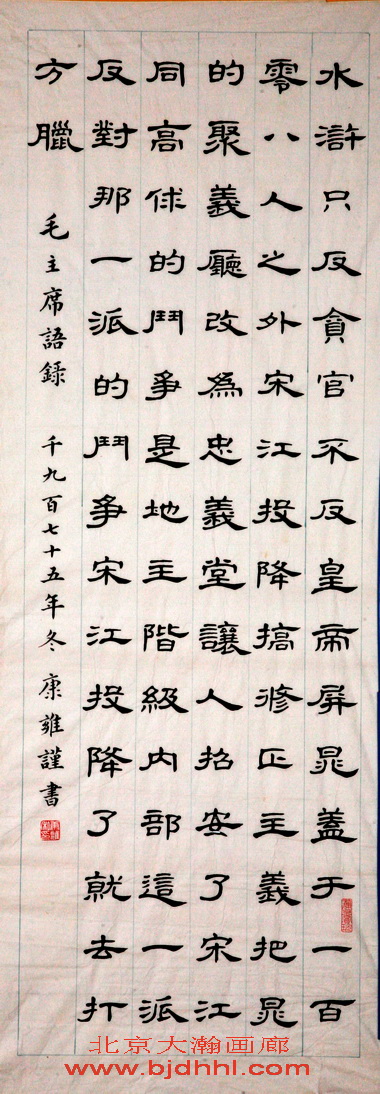 水滸只反貪官不反皇帝屏晁蓋于一百
零八人之外宋江投降搞修正主義把晁
的聚義廳改為忠義堂讓人招安了宋江
同高俅的鬥爭是地主階級内部這一派
反對那一派的鬥爭宋江投降了就去打
方臘
毛主席語録 千九百七十五年冬 康雍謹書
北京大瀚画廊
www.bjdhhl.com